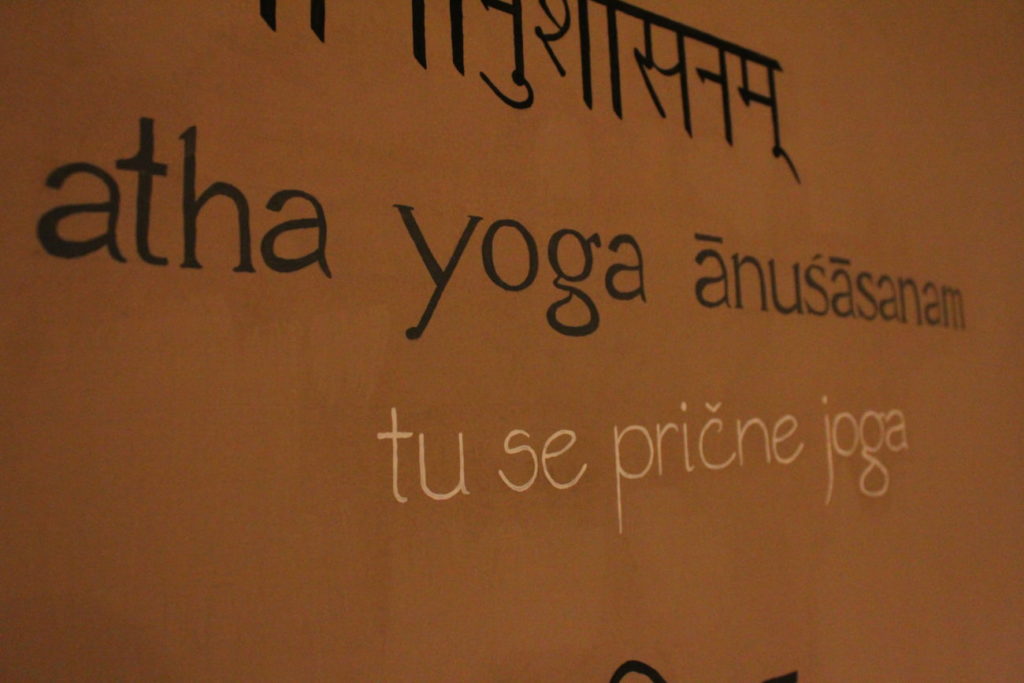 नुशासनम्
atha yoga ānuśāsanam
tu se prične joga